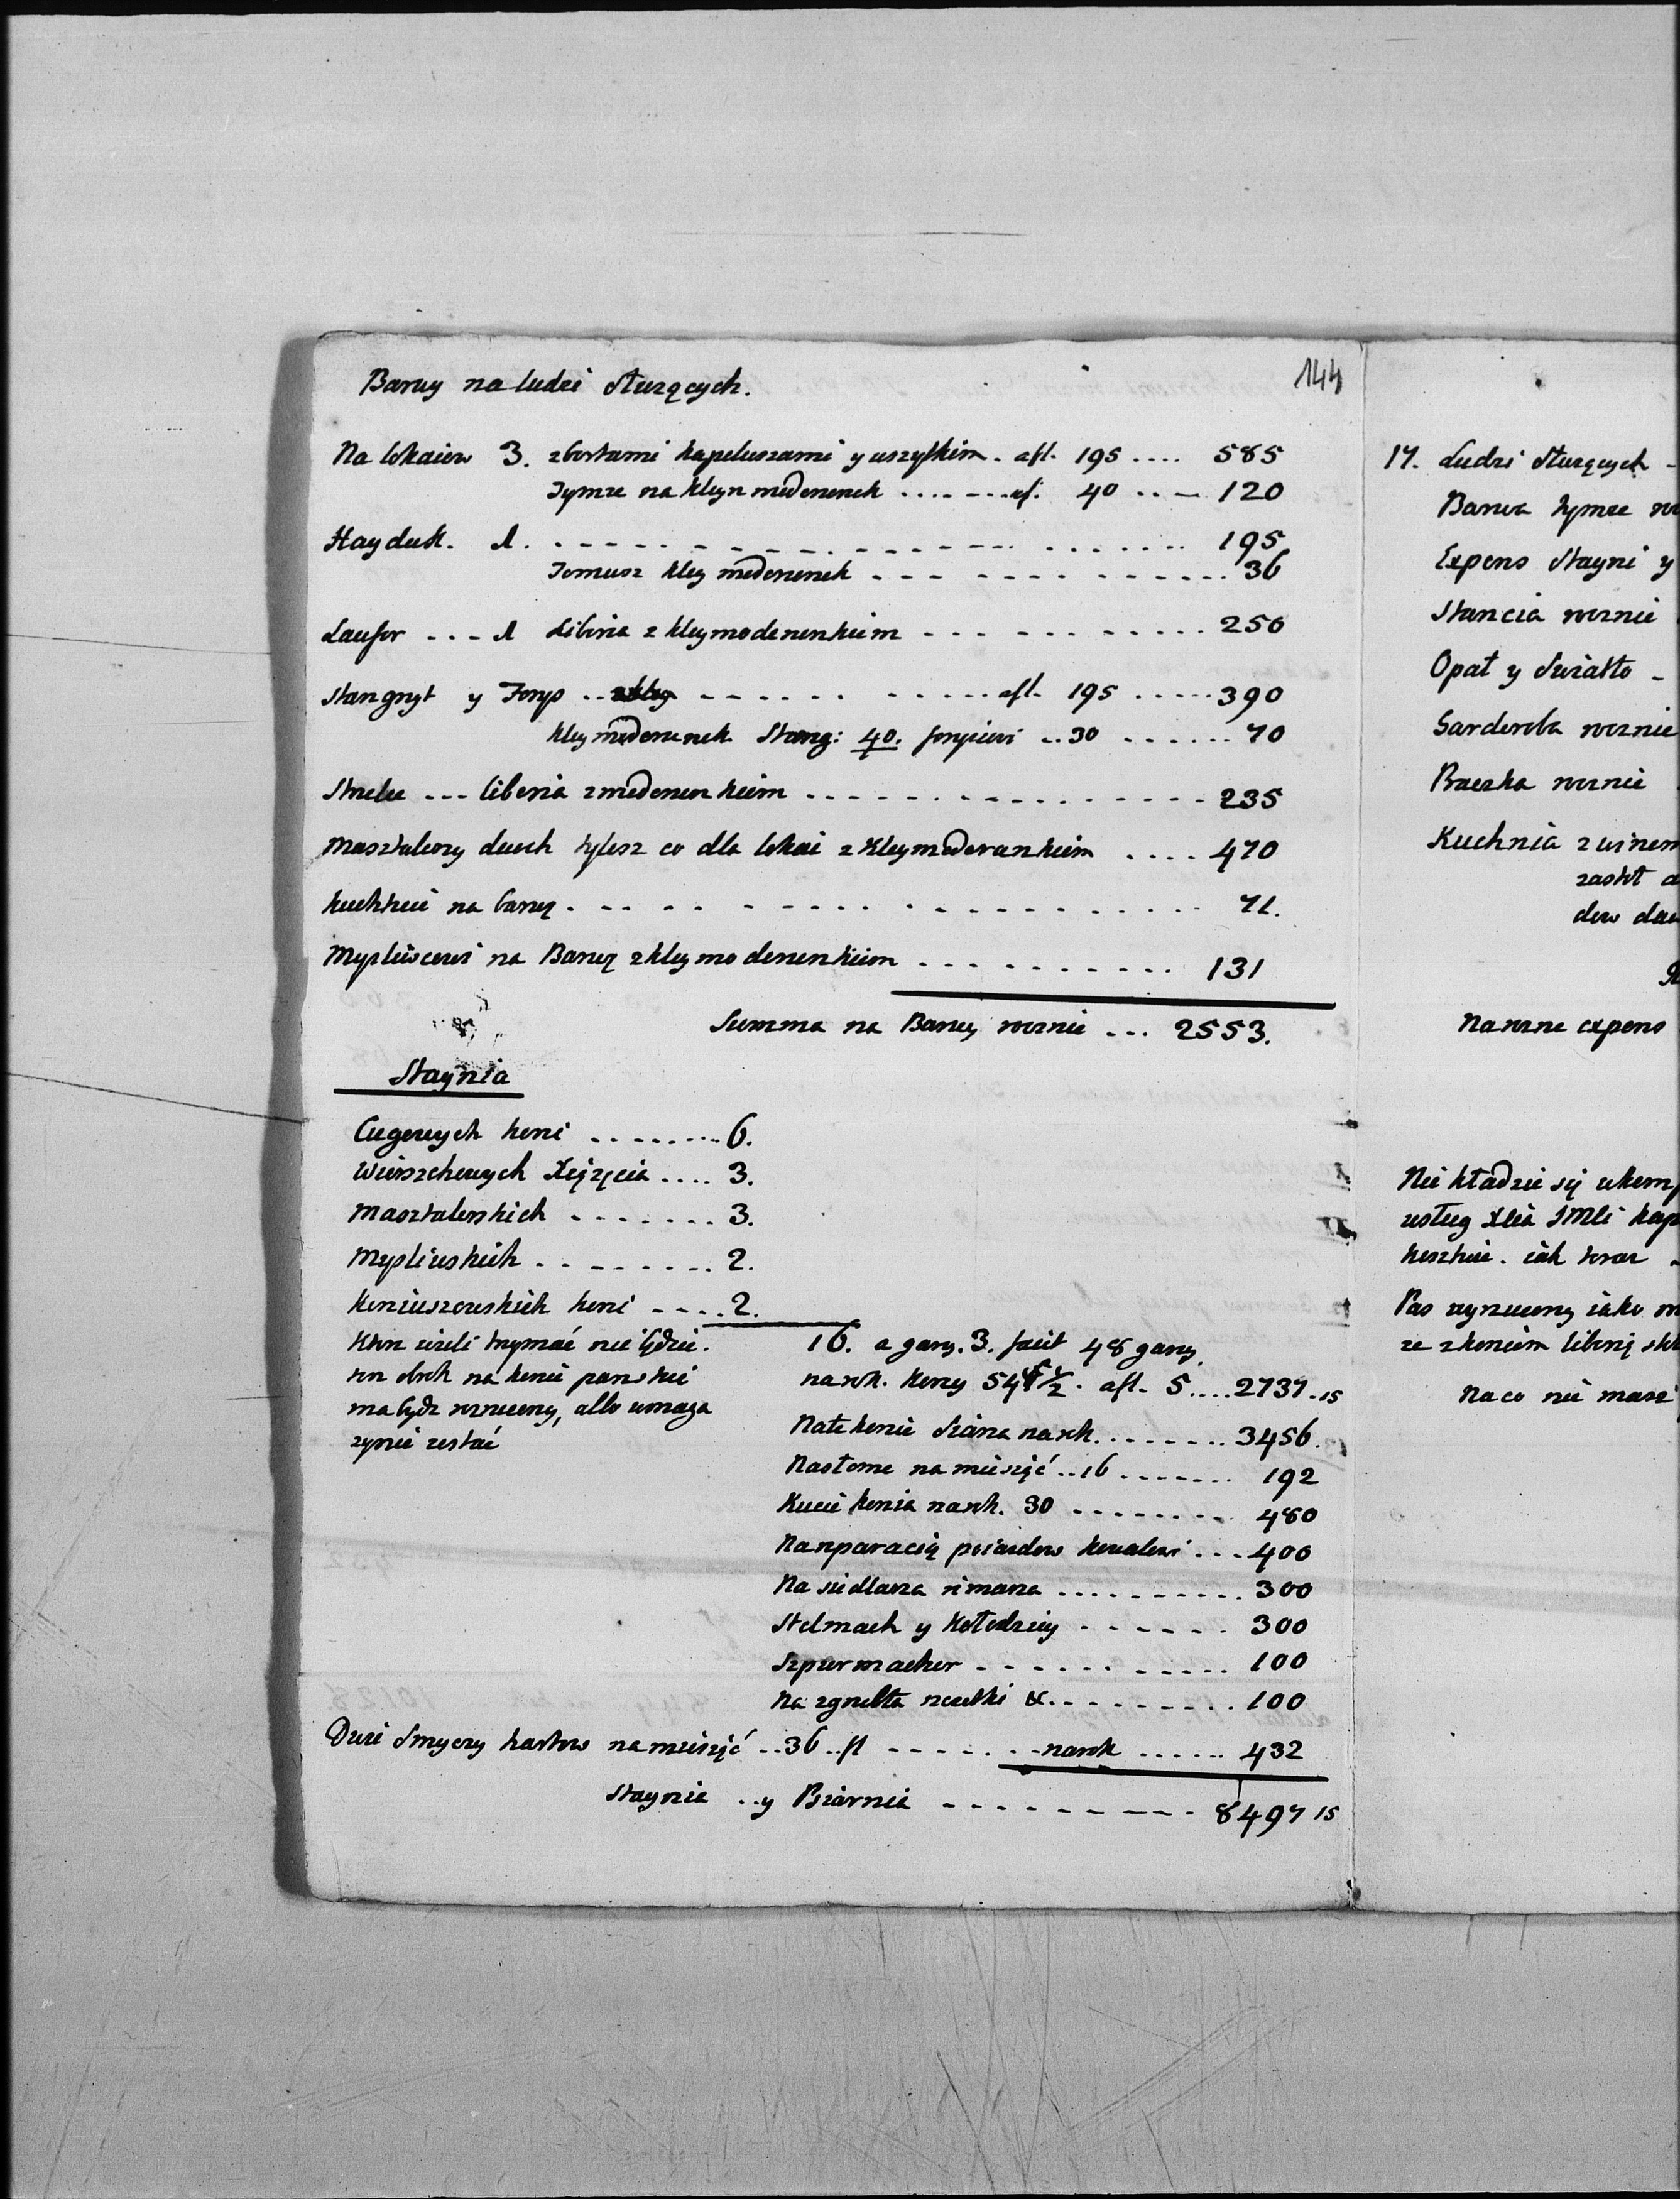 144
Barwy na ludzi służących.
Na lokaiow 3. zbortami kapeluszami y uszyțkim. afl. 195 .... 585
Tymże na kleyn moderunek ....... afl. 40 ... 120
Hayduk. 1. .......... 195
Temusz kley moderunek .......... 36
Laufor ... 1 Liberia z kleymoderunkiem .......... 250
Stangryt y Foryś .......... afl. 195 ..... 390
kley moderunek Stang: 40. forysiowi .. 30 ....... 70
Strzelec ... liberia z moderunkiem .......... 235
Masztalerzy dwoch tylesz co dla lokai z Kleymoderunkiem .... 470
kuchcie na barwę .......... 71.
Mysliwcowi na Barwę z kleymoderunkiem .......... 131
Summa na Barwy rocznie ... 2553.
Staynia
Cugowych koni ........ 6.
Wierszchowych Xiążęcia .... 3.
Masztalerskich ....... 3.
Mysliwskich ......... 2.
Koniuszowskich koni .... 2.
Ktor ieżeli trzymać nie będzie.
ten obrok na konie panskie
ma bydz rzucony, albo w maga
zynie zostać
16. a garcy. 3. facit 48 garcy
na rok. korcy 547 1/2. afl. 5 .... 2737. 15
Na te konie Siana na rok ........ 3456.
Na słome na miesiąć .. 16 ....... 192
Kucie konia na rok. 30 ........ 480
Na reparacią poiazdow kowalowi ... 400
Na siedlarza rimarza .......... 300
Stelmach y Kołodziey ...... 300
Szpurmacher ........ 100
Na zgrzebła szczotki &. ......... 100
Dwie Smyczy hartow na miesiąć .. 36 .. fl ....... na rok ...... 432
Staynia .. y Psiarnia .......... 8497 15
17. Ludzi służących -
Barwa tymże
Expens Stayni y
Stancia rocznie
Opał y Swiatło -
Garderoba rocznie
Praczka rocznie
Kuchnia z winem
Na rozne expens
Nie kładzie się
usług Xcia JMCi
koszkie. iak teraz
Pas wyrzucony iako
ze z koncem liberią
Na co nie masz